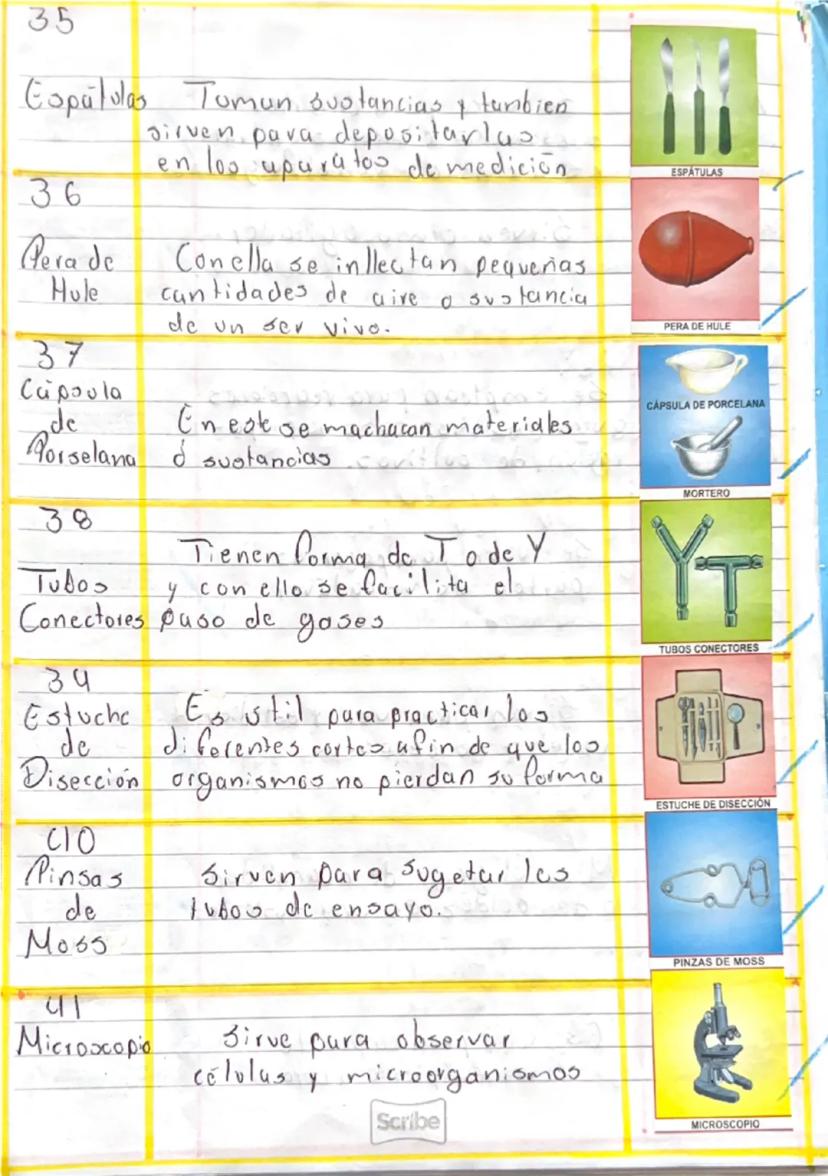 35
Espátulas Toman sustancias y tambien
sirven para depositarlas
en los aparatos de medición
ESPÁTULAS
36
Pera de Con ella se inllectan pequeñas
Hule cantidades de aire o sustancia
de un ser vivo.
PERA DE HULE
37
Cápsula
de En este se machacan materiales
Porselana ó sustancias
CÁPSULA DE PORCELANA
MORTERO
38
Tienen forma de T o de Y
Tubos y con ello se facilita el
Conectores paso de gases
TUBOS CONECTORES
39
Estuche Es util para practicar los
de diferentes cortes afin de que los
Disección organismos no pierdan su forma
ESTUCHE DE DISECCIÓN
40
Pinsas sirven para sugetar los
de tubos de ensayo.
Moss
PINZAS DE MOSS
41
Microscopio Sirve para observar
células y microorganismos
MICROSCOPIO
Scribe